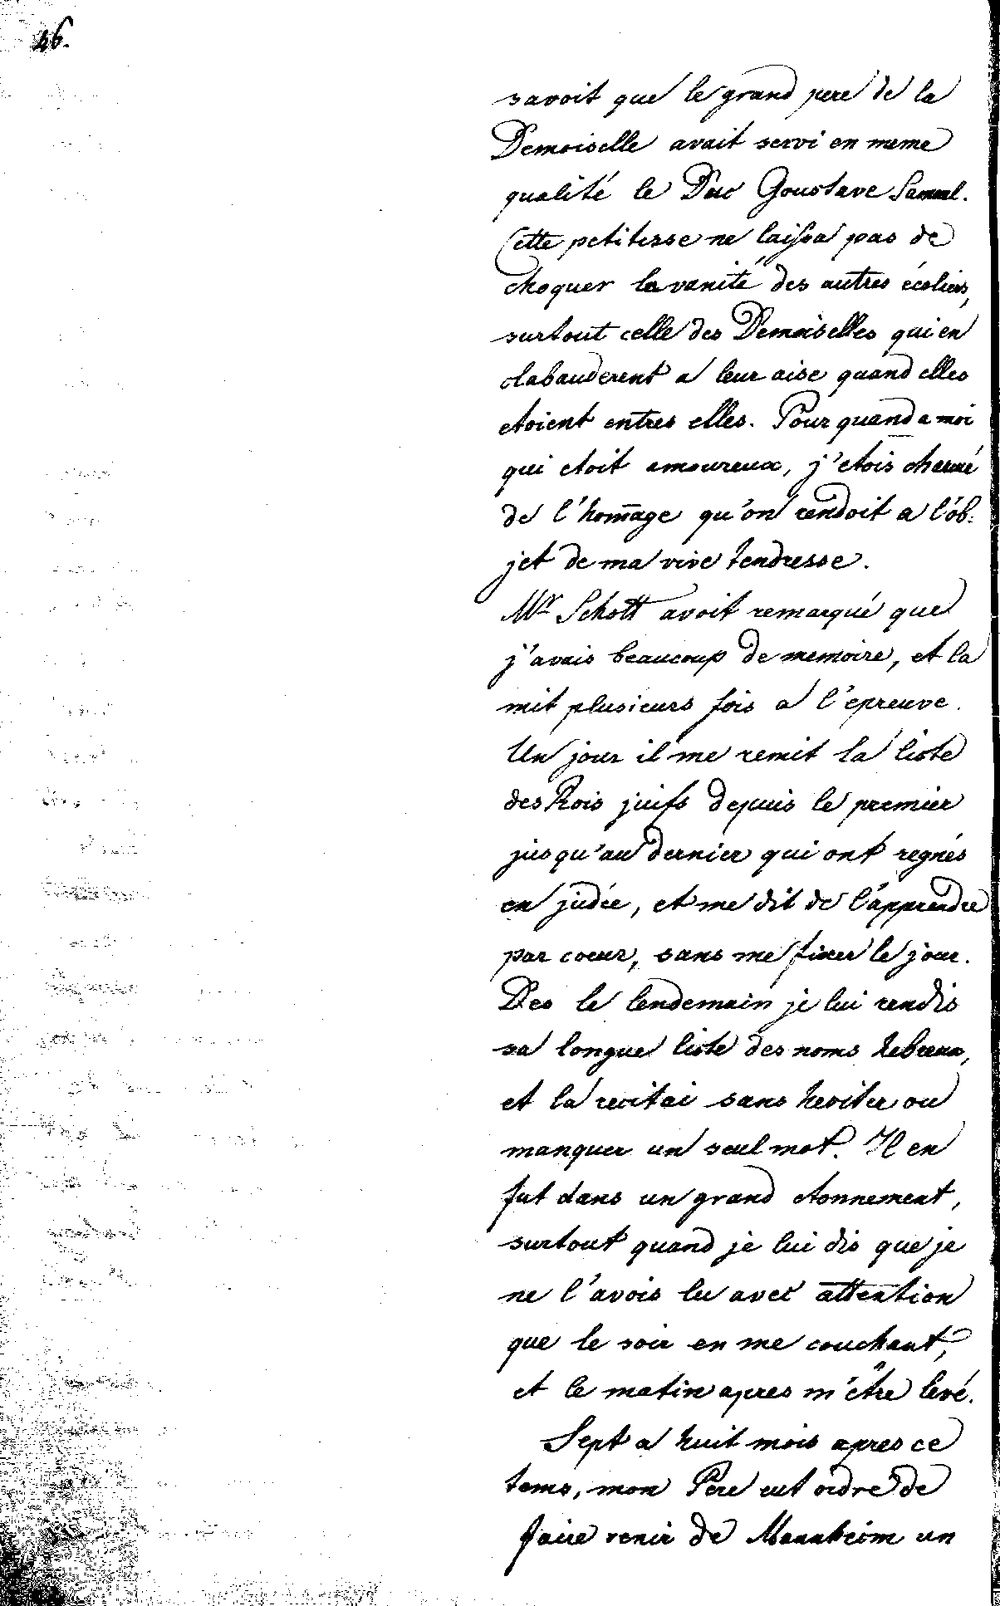 46.
savoit que le grand pere de la
Demoiselle avait servi en meme
qualité le Duc Goustave Samuel.
Cette petitesse ne laissa pas de
choquer la vanité des autres écoliers,
surtout celle des Demoiselles qui en
clabauderent a leur aise quand elles
etoient entres elles. Pour quand a moi
qui etoit amoureux, j'etois charmé
de l'hom̄age qu'on rendoit a l'ob:
jet de ma vive tendresse.
Mr Schott avoit remarqué que
j'avais beaucoup de memoire, et la
mit plusieurs fois a l'epreuve.
Un jour il me remit la liste
des Rois juifs depuis le premier
jusqu'au dernier qui ont regnés
en judée, et me dit de l'apprendre
par coeur, sans me fixer le jour.
Des le lendemain je lui rendis
sa longue liste des noms hebreux,
et la recitai sans hesiter ou
manquer un seul mot. Il en
fut dans un grand etonnement,
surtout quand je lui dis que je
ne l'avois lu avec attention
que le soir en me couchant,
et le matin apres m'être levé.
Sept a huit mois apres ce
tems, mon Pere eut ordre de
faire venir de Mannheim un